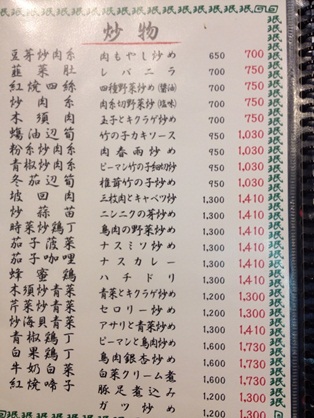 炒物
豆芽炒肉系 肉もやし炒め 650 700
韮菜肚 レバニラ 700 750
紅焼四絲 四種野菜炒め(醤油) 700 750
炒肉系 肉糸切野菜炒め(塩味) 700 750
木須肉 玉子とキクラゲ炒め 700 750
蠣油辺筍 竹の子カキソース 950 1,030
粉系炒肉系 肉春雨炒め 950 1,030
青椒炒肉系 ピーマン竹の子細切炒め 950 1,030
冬茄辺筍 椎茸竹の子炒め 950 1,030
坡回肉 三枚肉とキャベツ炒 1,300 1,410
炒蒜苗 ニンニクの芽炒め 1,300 1,410
時菜炒鶏丁 鳥肉の野菜炒め 1,300 1,410
茄子菠菜 ナスミソ炒め 1,300 1,410
茄子咖哩 ナスカレー 1,300 1,410
蜂蜜鶏 ハチドリ 1,300 1,410
木須炒青菜 青菜とキクラゲ炒め 1,200 1,300
芹菜炒青菜 セロリー炒め 1,200 1,300
炒海貝青菜 アサリと青菜炒め 1,300 1,410
青椒鶏丁 ピーマンと鳥肉炒め 1,600 1,730
白果鶏丁 鳥肉銀杏炒め 1,600 1,730
牛奶白菜 白菜クリーム煮 1,600 1,730
紅焼啼子 豚足煮込み 1,200 1,300
ガツ炒め 1,200 1,300